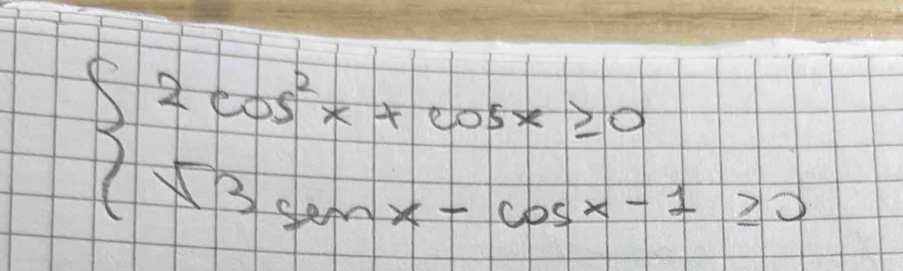 2 cos²x + cosx ≥ 0
√3 senx - cosx - 1 ≥ 0